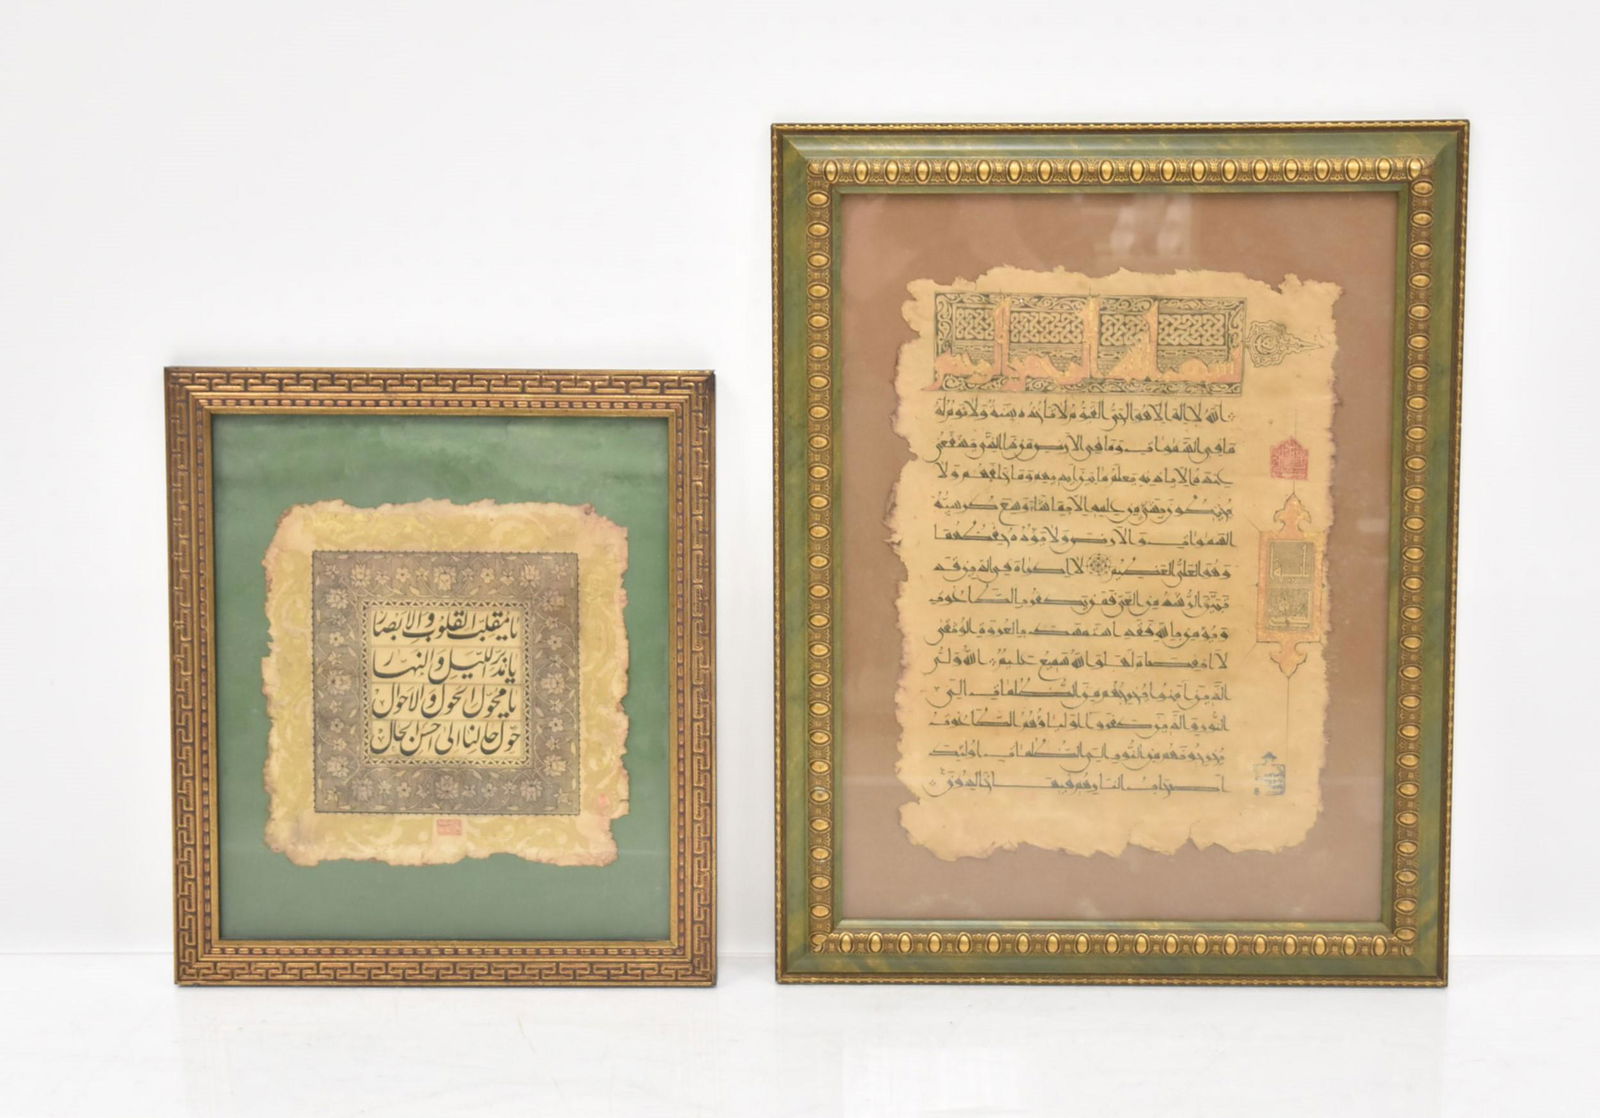 يا مقلب القلوب و الابصار
يا مدبر الليل و النهار
يا محول الحول و الاحوال
حول حالنا الى احسن الحال
بسم الله الرحمن الرحيم
الله لا اله الا هو الحي القيوم لا تأخذه سنة ولا نوم له
ما في السموات وما في الارض من ذا الذي يشفع
عنده الا باذنه يعلم ما بين ايديهم وما خلفهم ولا
يحيطون بشيء من علمه الا بما شاء وسع كرسيه
السموات والارض ولا يؤده حفظهما
وهو العلي العظيم لا اكراه في الدين قد
تبين الرشد من الغي فمن يكفر بالطاغوت
ويؤمن بالله فقد استمسك بالعروة الوثقى
لا انفصام لها والله سميع عليم الله ولي
الذين آمنوا يخرجهم من الظلمات الى
النور والذين كفروا اولياؤهم الطاغوت
يخرجونهم من النور الى الظلمات اولئك
اصحاب النار هم فيها خالدون